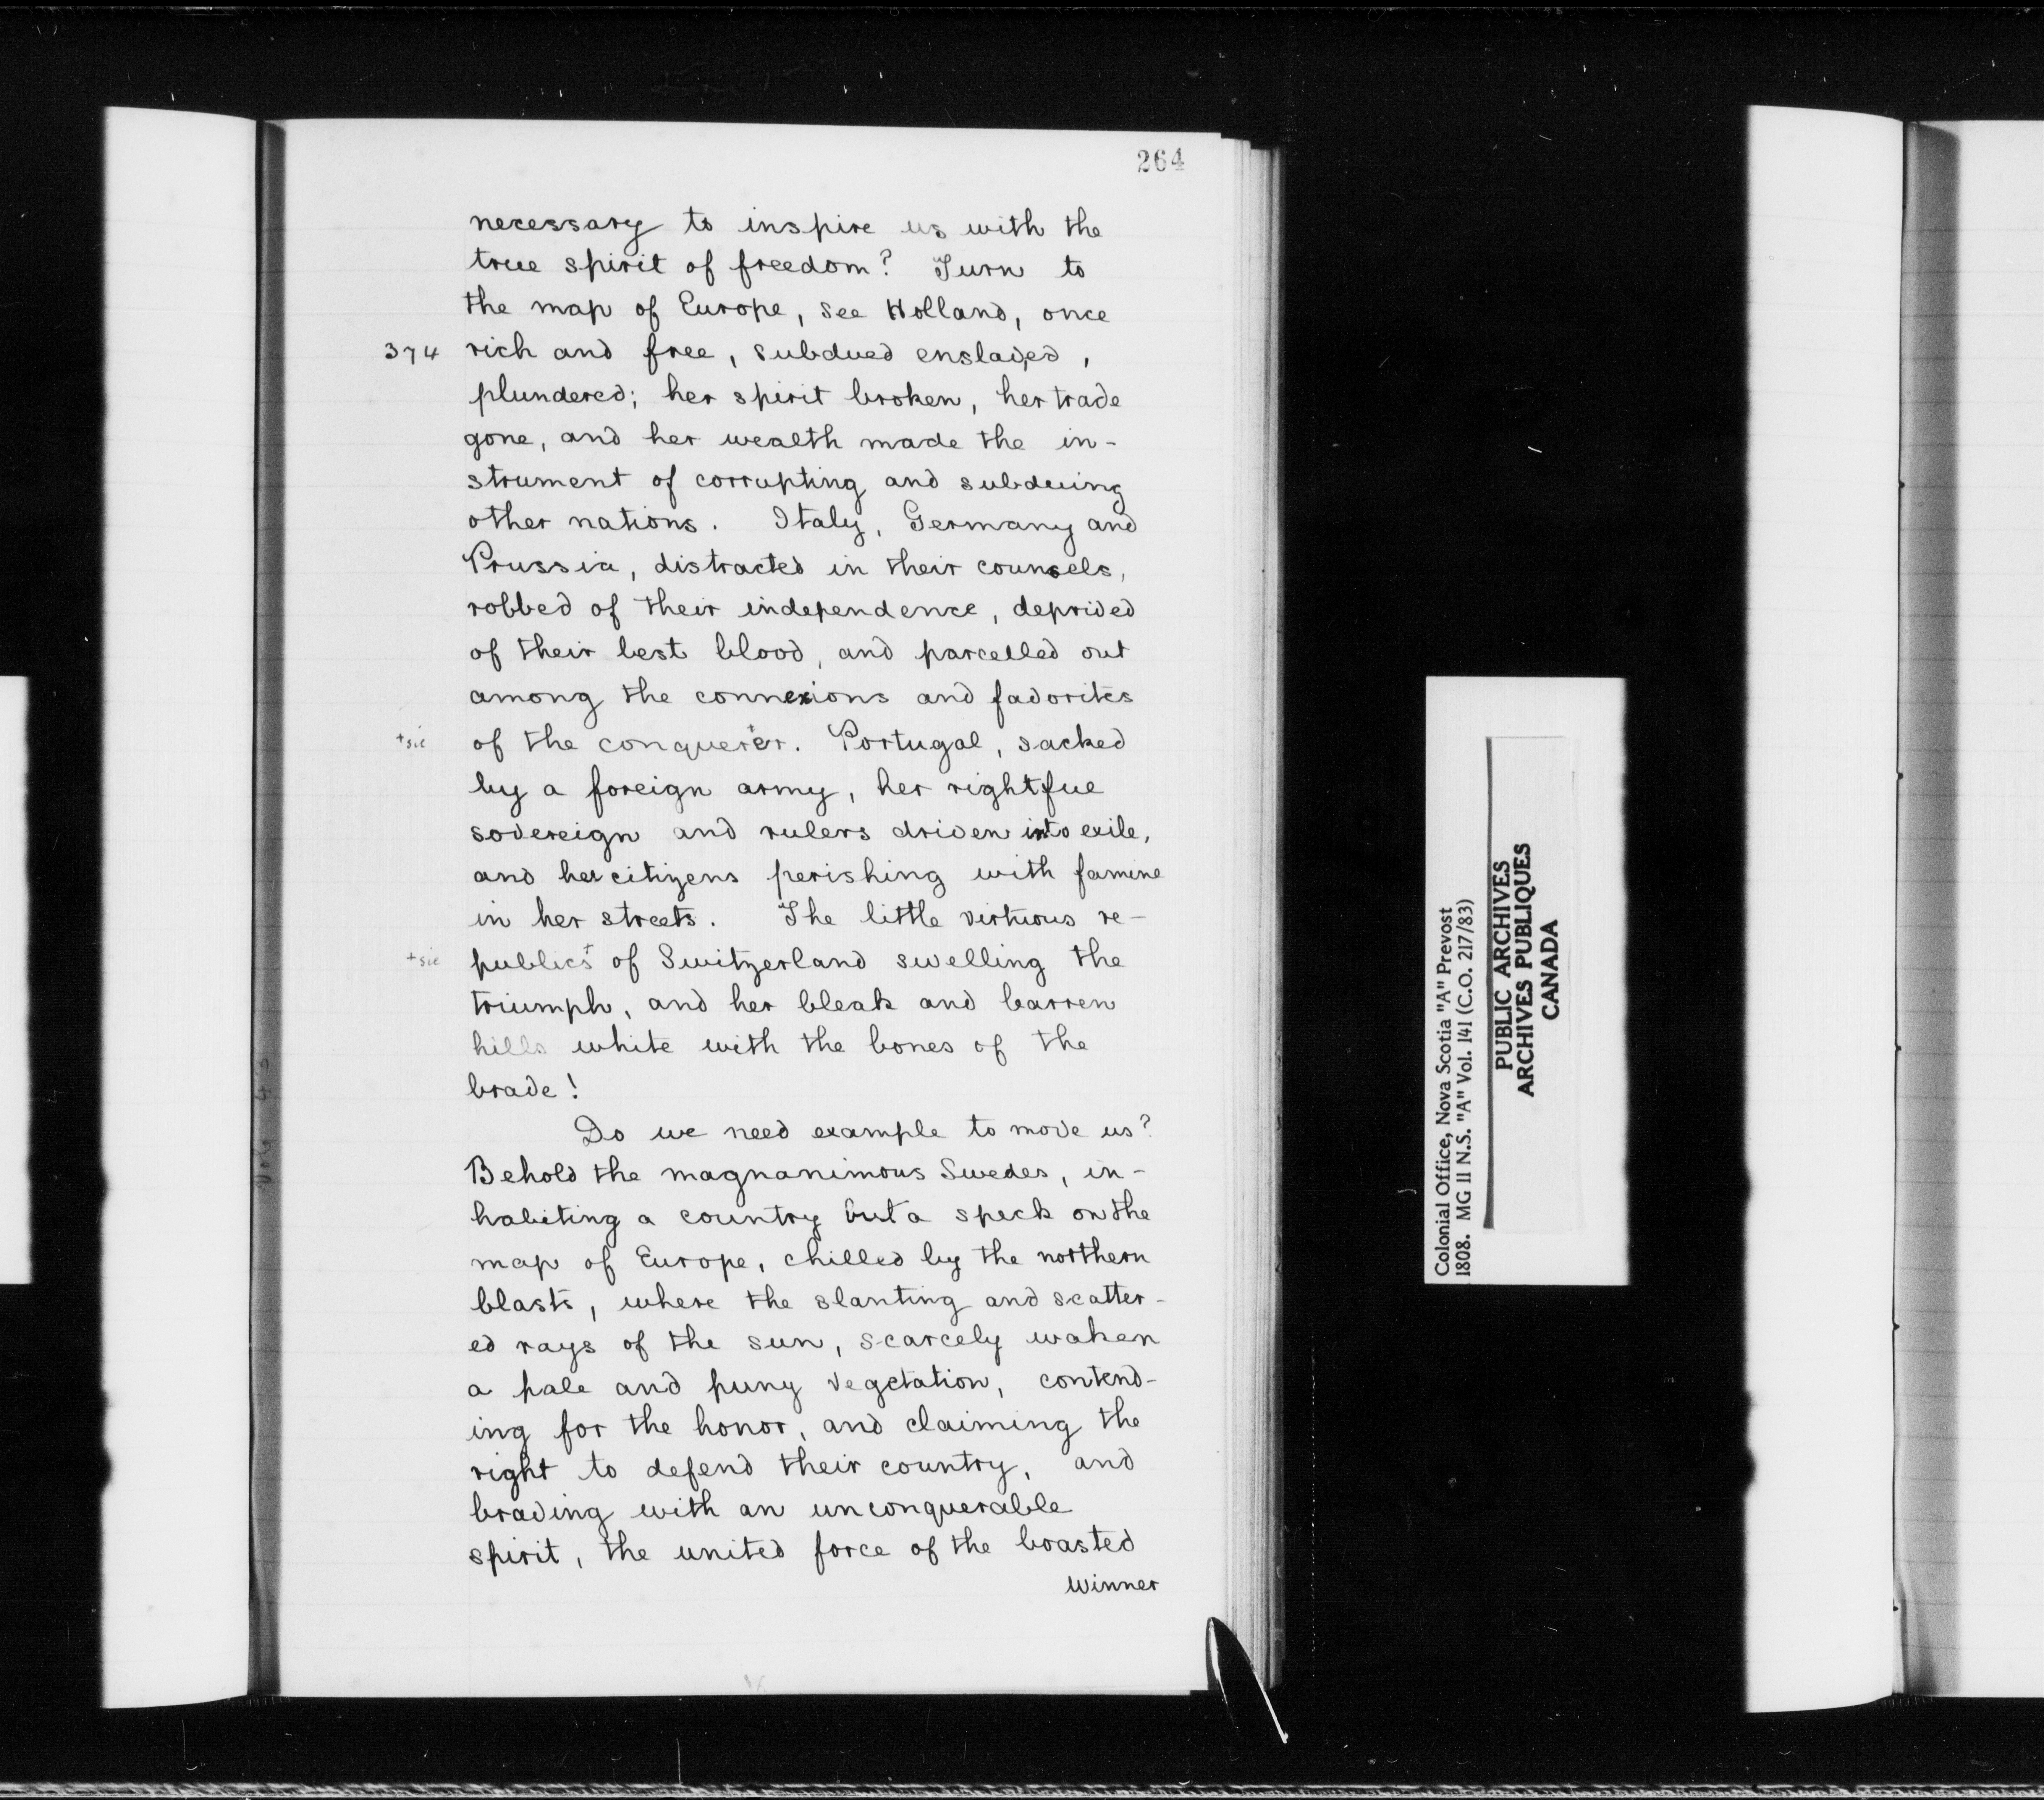 264
necessary to inspire us with the
true spirit of freedom? Turn to
the map of Europe, see Holland, once
374 rich and free, subdued enslaved,
plundered; her spirit broken, her trade
gone, and her wealth made the in-
strument of corrupting and subduing
other nations. Italy, Germany and
Prussia, distracted in their counsels,
robbed of their independence, deprived
of their best blood, and parcelled out
among the connexions and favorites
+sic of the conquerer+. Portugal, sacked
by a foreign army, her rightful
sovereign and rulers driven into exile,
and her citizens perishing with famine
in her streets. The little virtuous re-
+sic publics+ of Switzerland swelling the
triumph, and her bleak and barren
hills white with the bones of the
brave!
Do we need example to move us?
Behold the magnanimous Swedes, in-
habiting a country but a speck on the
map of Europe, chilled by the northern
blasts, where the slanting and scatter-
ed rays of the sun, scarcely waken
a pale and puny vegetation, contend-
ing for the honor, and claiming the
right to defend their country, and
braving with an unconquerable
spirit, the united force of the boasted
winner
Colonial Office, Nova Scotia "A" Prevost
1808. MG 11 N.S. "A" Vol. 141 (C.O. 217/83)
PUBLIC ARCHIVES
ARCHIVES PUBLIQUES
CANADA